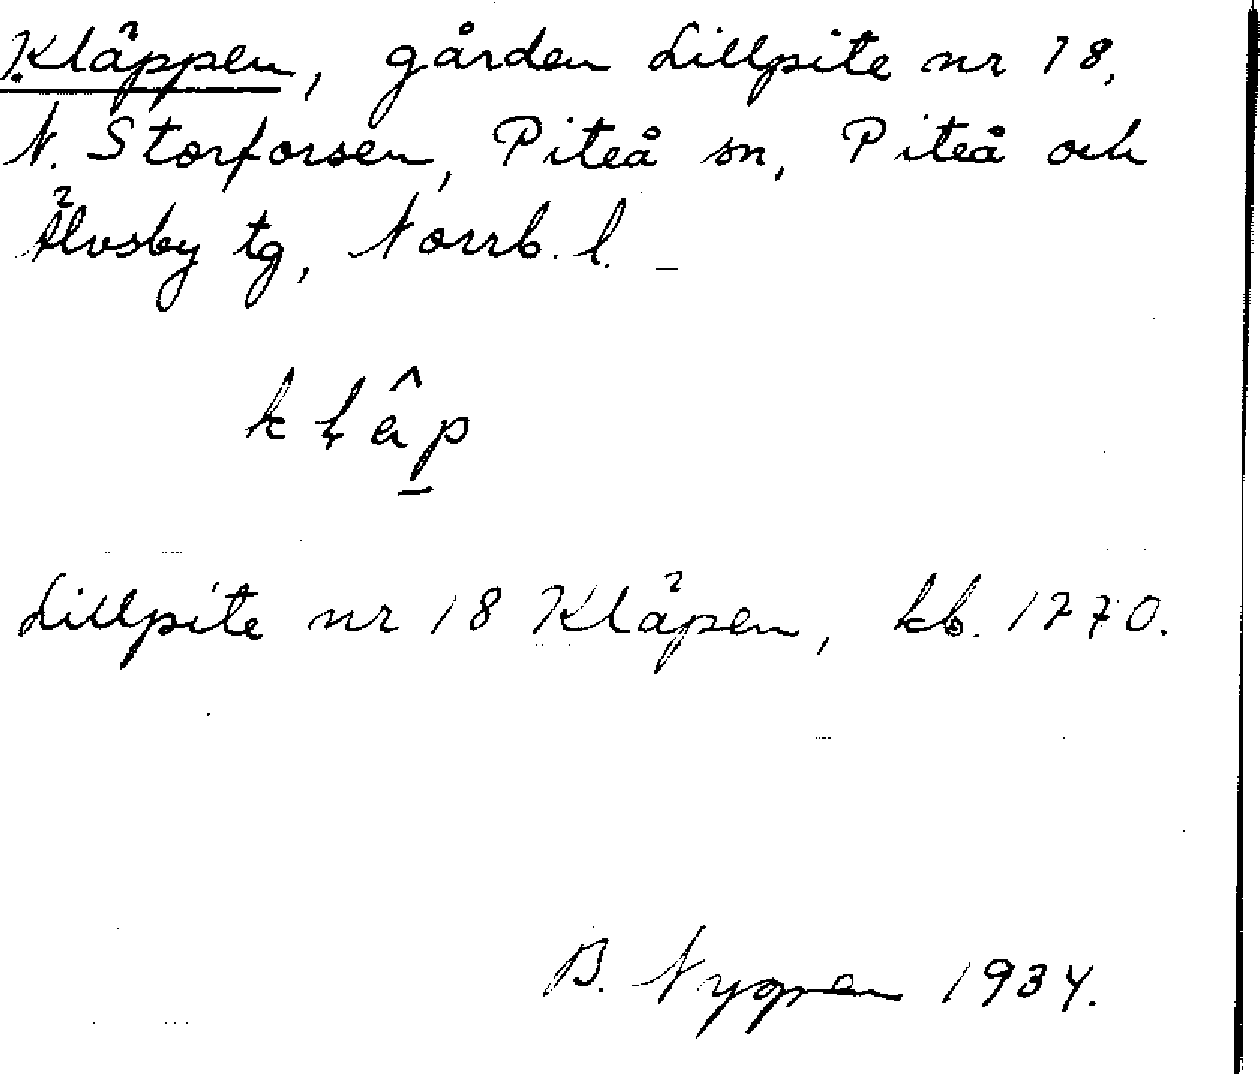 Kläppen, gården Lillpite nr 18,
N. Storforsen, Piteå sn, Piteå och
Älvsby tg, Norrb. l. –
Lillpite nr 18 Kläpen, kb. 1770.
B. Nygren 1934.